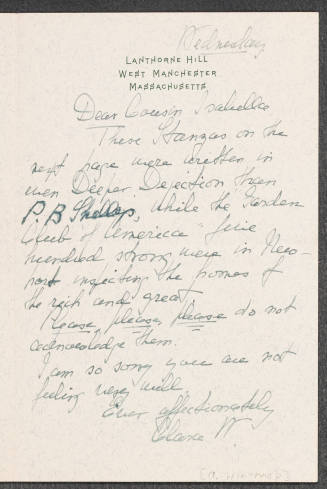 Wednesday
LANTHORNE HILL
WEST MANCHESTER
MASSACHUSETTS
Dear Cousin Isabella
These Stanzas on the
next page were written in
even Deeper Dejection than
P. B Shelley's, while the Garden
Club of America "five
hundred strong were in New-
port inspecting the homes of
the rich and great"
Please, please, please do not
acknowledge them.
I am so sorry you are not
feeling very well.
Ever affectionately
Clara W.